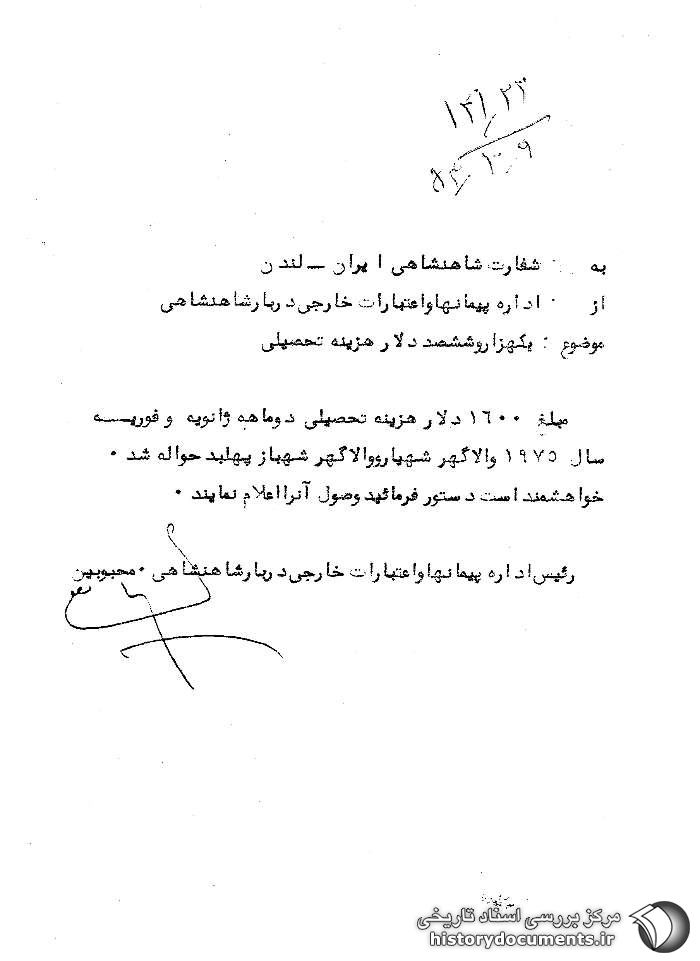 به : سفارت شاهنشاهی ایران ــ لندن
از : اداره پیمانها و اعتبارات خارجی دربار شاهنشاهی
موضوع : یکهزار و ششصد دلار هزینه تحصیلی
مبلغ ۱۶۰۰ دلار هزینه تحصیلی دوماهه ژانویه و فوریـــه
سال ۱۹۷۵ والاگهر شهیار و والاگهر شهباز پهلبد حواله شد ۰
خواهشمند است دستور فرمائید وصول آنرا اعلام نمایند ۰
رئیس اداره پیمانها و اعتبارات خارجی دربار شاهنشاهی ۰ محبوبین
مرکز بررسی اسناد تاریخی
historydocuments.ir